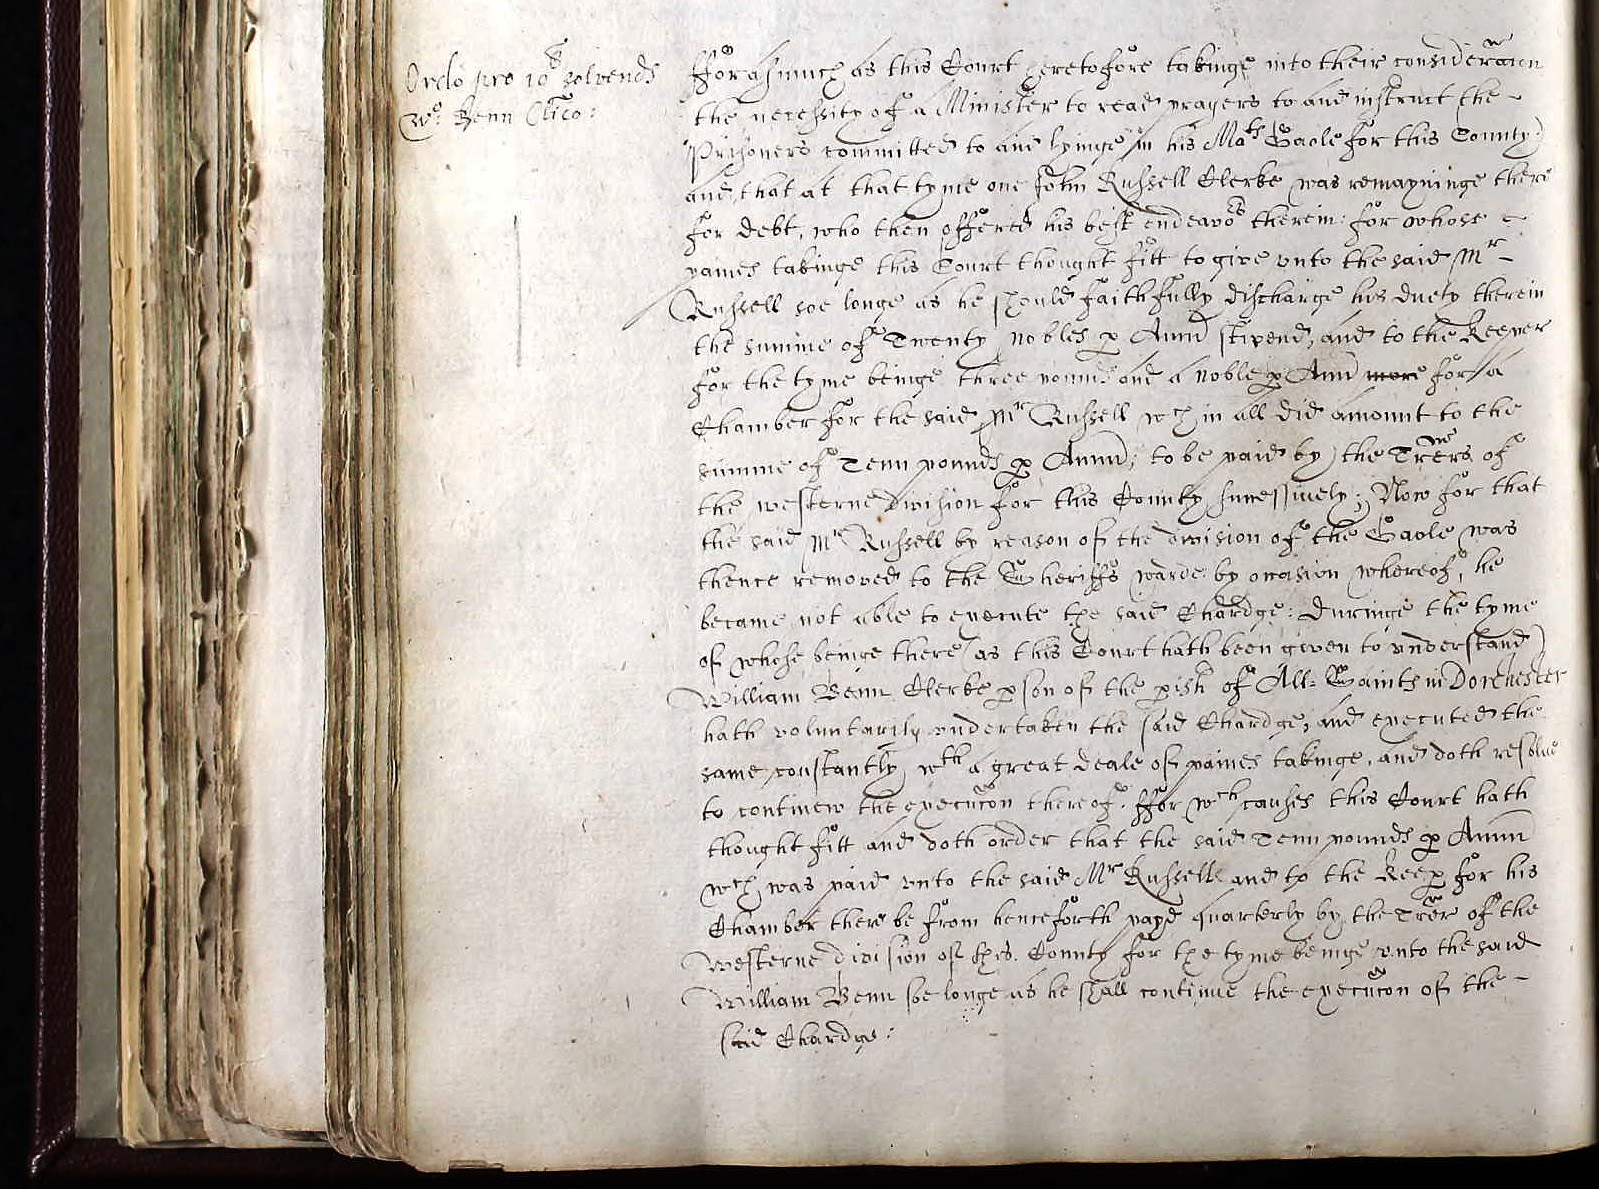 Ordo pro 10li solvend
Wo: Benn Clico:
Fforasmuch as this Court heretofore takinge into their consideracon
the necessity of a Minister to read prayers to and instruct the
Prisoners committed to and lyinge in his Mats Gaole for this County
and that at that tyme one John Russell Clerke was remayninge there
for debt, who then offered his best endeavors therein: for whose
paines takinge this Court thought fitt to give unto the said Mr
Russell soe longe as he should faithfully discharge his duety therein
the summe of Twenty nobles p Annu stipend, and to the Keeper
for the tyme beinge three pounds and a noble p Ann more for a
Chamber for the said Mr Russell wch in all did amount to the
summe of Tenn pounds p Annu; to be paid by the Trers of
the westerne Division for this County successively; Now for that
the said Mr Russell by reason of the division of the Gaole was
thence removed to the Sheriffs warde by occasion whereof, he
became not able to execute the said Chardge: duringe the tyme
of whose beinge there (as this Court hath been given to understand)
William Benn Clerke pson of the pish of All: Saints in Dorchester
hath voluntarily undertaken the said Chardge, and executed the
same constantly wth a great deale of paines takinge, and doth resolve
to continew the execucon thereof. ffor wch causes this Court hath
thought fitt and doth order that the said Tenn pounds p Annu
wch was paid unto the said Mr Russell and to the Keep for his
Chamber there be from henceforth payd quarterly by the Trer of the
Westerne division of this County for the tyme beinge unto the said
William Benn soe longe as he shall continue the execucon of the
said Chardge: